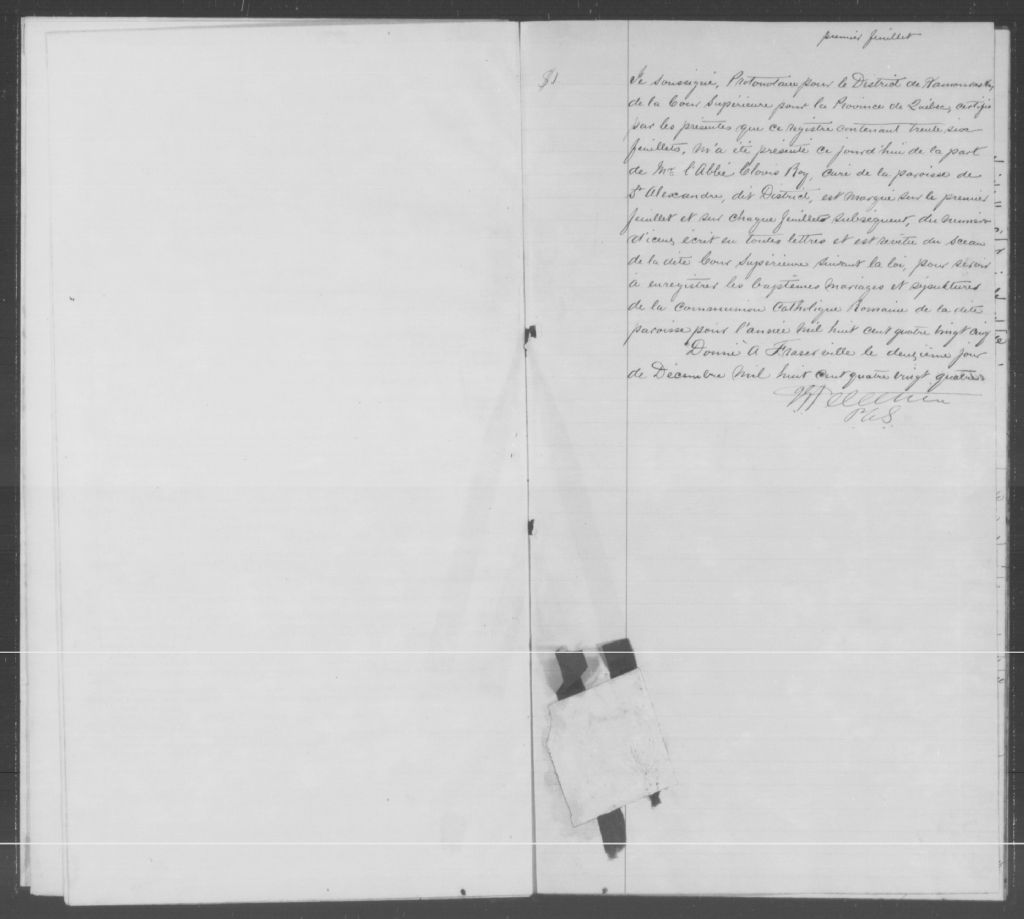 premier feuillet
$1
Je soussigné, Protonotaire pour le District de Kamouraska,
de la Cour Supérieure pour la Province de Québec, certifie
par les présentes que ce registre contenant trente six
feuillets, m'a été présenté ce jourd'hui de la part
de Mr. l'Abbé Clovis Roy, curé de la paroisse de
St Alexandre, dit District, est marqué sur le premier
feuillet et sur chaque feuillets subséquent, du numéro
d'iceux écrit en toutes lettres et est revêtu du sceau
de la dite Cour Supérieure suivant la loi, pour servir
à enregistrer les baptêmes mariages et sépultures
de la communion Catholique Romaine de la dite
paroisse pour l'année mil huit cent quatre vingt cinq
Donné à Fraserville le deuxième jour
de Décembre mil huit cent quatre vingt quatre
Pelletier
P.C.S.